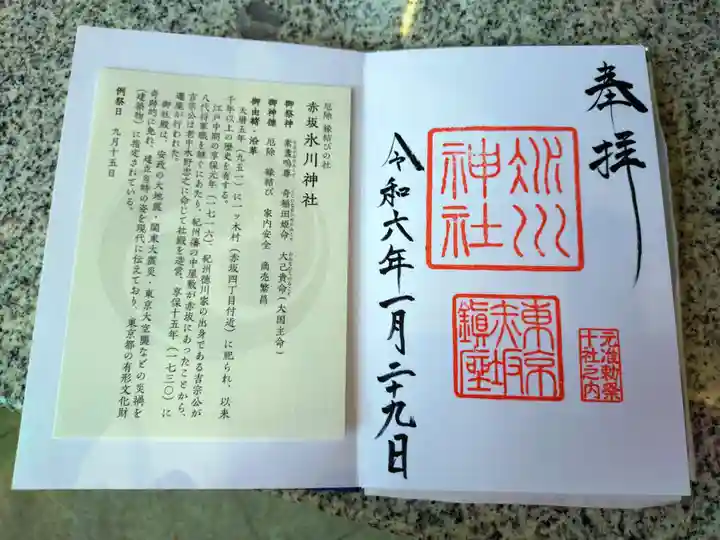 奉拝
氷川
神社
東京
赤坂
鎮座
元准勅祭
十社之内
令和六年一月二十九日
厄除 縁結びの社
赤坂氷川神社
御祭神 素盞嗚尊 奇稲田姫命 大己貴命(大国主命)
御神徳 厄除 縁結び 家内安全 商売繁昌
御由緒・沿革
天暦五年(九五一)に一ツ木村(赤坂四丁目付近)に祀られ、以来
千年以上の歴史を有する。
江戸中期の享保元年(一七一六)、紀州徳川家の出身である吉宗公が
八代将軍職を継ぐにあたり、紀州藩の中屋敷が赤坂にあったことから、
吉宗公は老中水野忠之に命じて社殿を造営、享保十五年(一七三〇)に
遷座が行われた。
御社殿は、安政の大地震・関東大震災・東京大空襲などの災禍を
奇跡的に免れ、建立当時の姿を現代に伝えており、東京都の有形文化財
(建築物)に指定されている。
例祭日 九月十五日